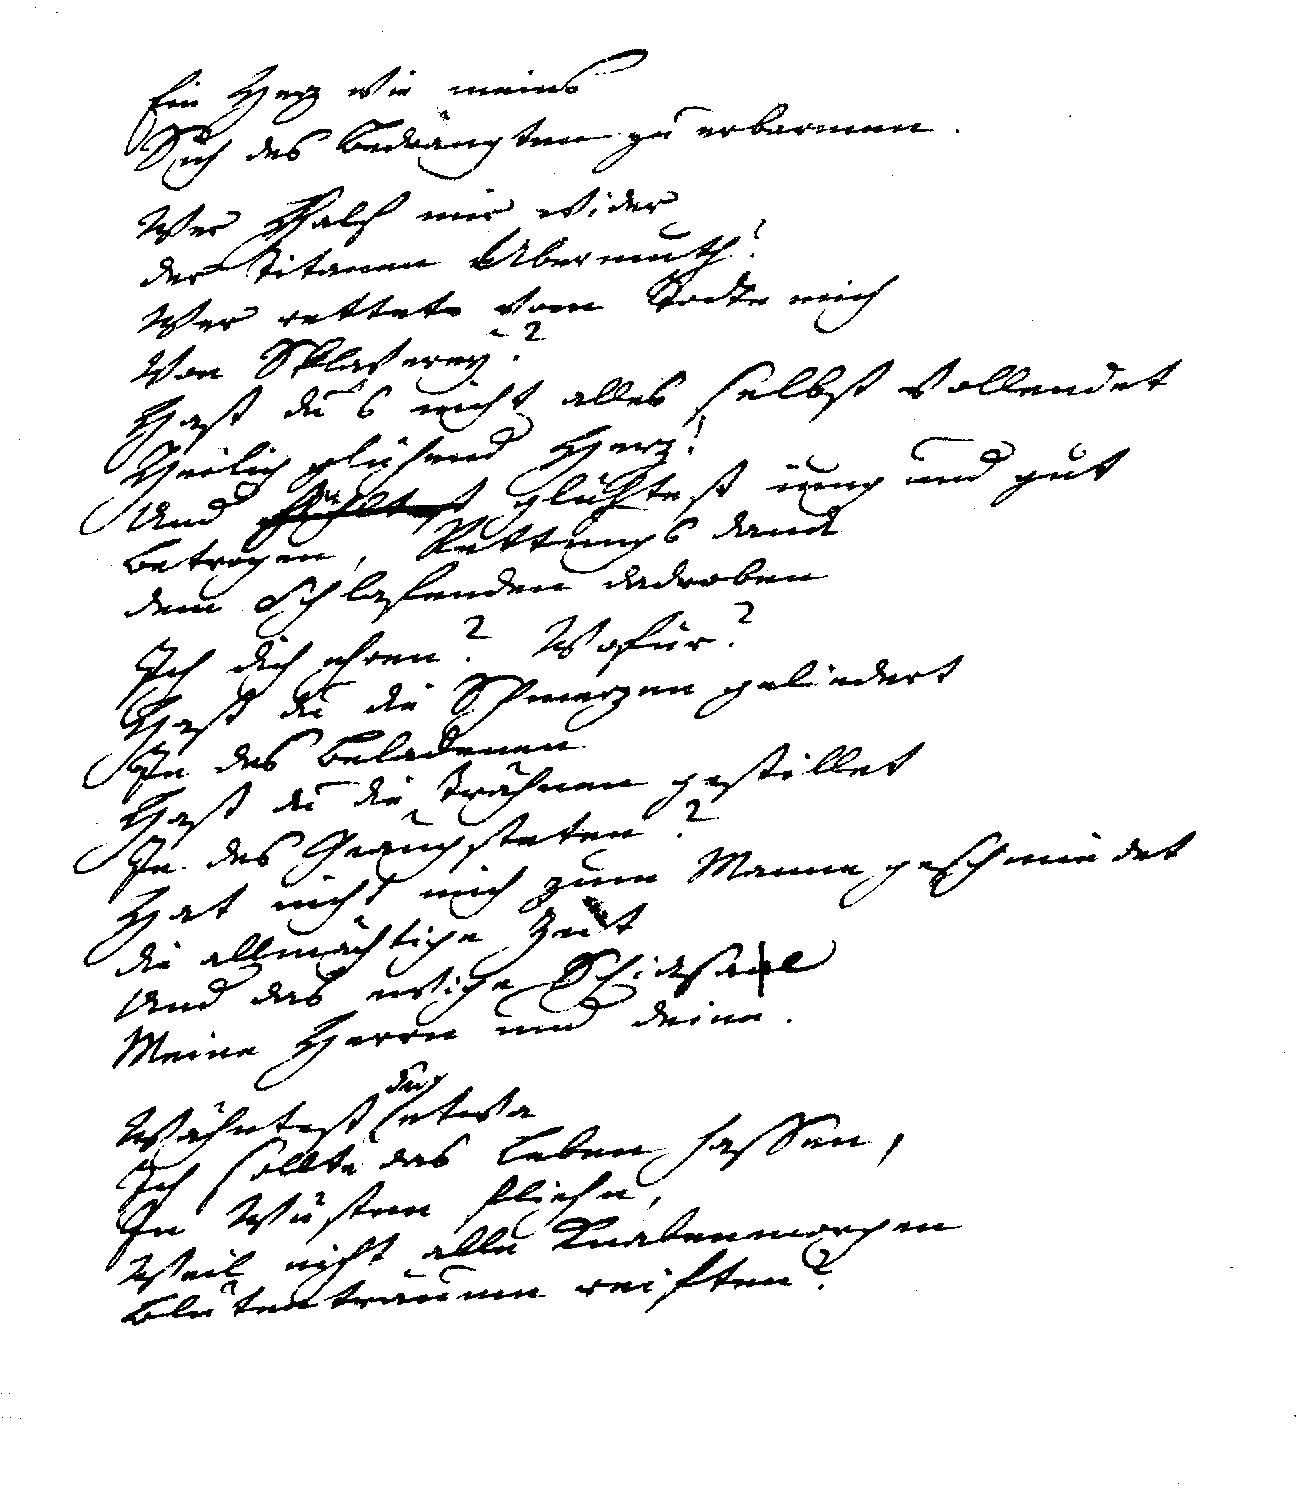 Ein Herz wie meins
Sich des Bedrängten zu erbarmen.
Wer Half mir wider
der Titanen Ubermuth!
Wer rettete vom Todte mich
Von Sklaverey?
Hast du's nicht alles selbst vollendet
Heilig glühend Herz!
Und fühltest glühtest iung und gut
Betrogen, Rettungs danck
dem Schlafenden dadroben
Ich dich ehren? Wofür?
Hast du die Schmerzen gelindert
Ie des Beladenen
Hast du die Trähnen gestillet
Ie des Geängsteten?
Hat nicht mich zum Manne geschmiedet
die allmächtige Zeit
Und das ewige Schicksaal
Meine Herrn und deine.
Wähntest du etwa
Ich sollte das Leben hassen,
In Wüsten fliehn,
Weil nicht alle Knabenmorgen
Blütenträume reiften?